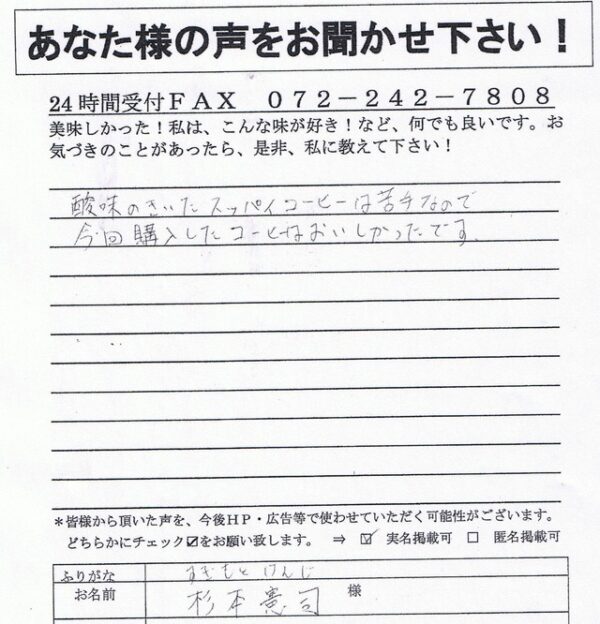 あなた様の声をお聞かせ下さい！
24時間受付ＦＡＸ　０７２－２４２－７８０８
美味しかった！私は、こんな味が好き！など、何でも良いです。お
気づきのことがあったら、是非、私に教えて下さい！
酸味のきいたスッパイコーヒーは苦手なので
今回購入したコーヒーはおいしかったです。
＊皆様から頂いた声を、今後ＨＰ・広告等で使わせていただく可能性がございます。
どちらかにチェック☑をお願い致します。　⇒　☑　実名掲載可　☐　匿名掲載可
ふりがな　すぎもと けんじ
お名前　杉本憲司　様